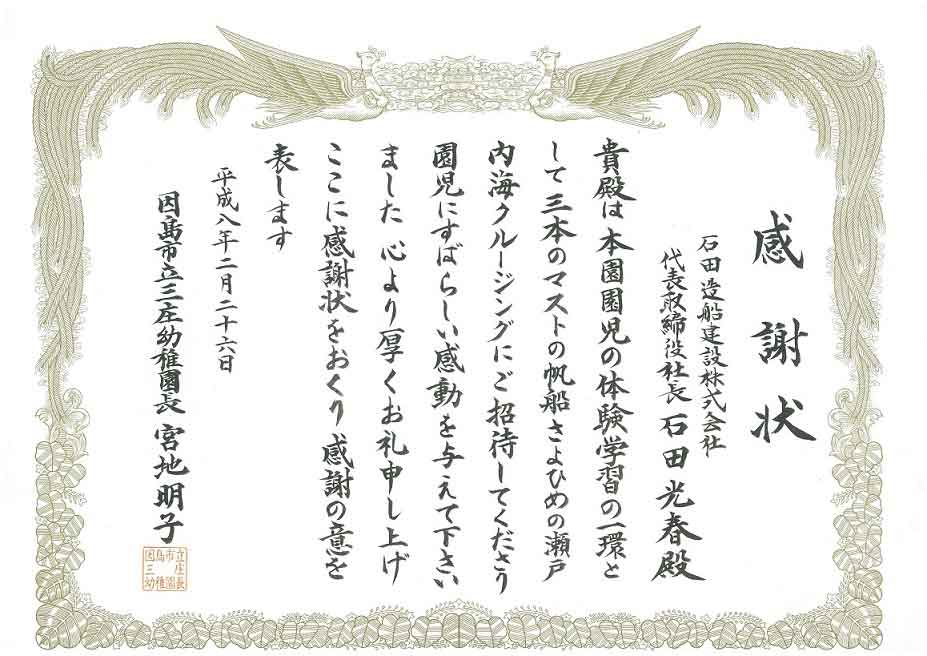 感謝状
石田造船建設株式会社
代表取締役社長 石田光春殿
貴殿は本園園児の体験学習の一環と
して三本のマストの帆船さよひめの瀬戸
内海クルージングにご招待してくださり
園児にすばらしい感動を与えて下さい
ました 心より厚くお礼申し上げ
ここに感謝状をおくり感謝の意を
表します
平成八年二月二十六日
因島市立三庄幼稚園長 宮地明子
因島市立
三庄
幼稚園長